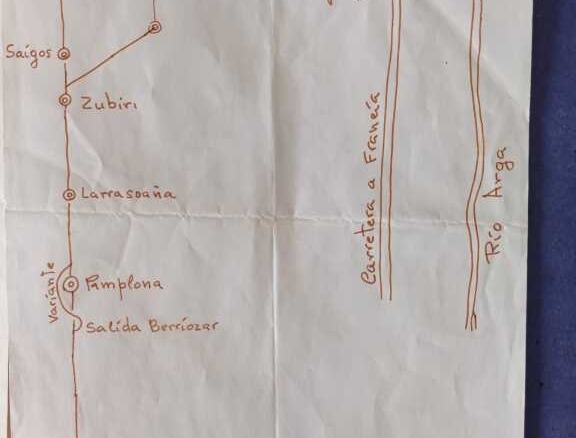 Saigos
Zubiri
Larrasoaña
Variante
Pamplona
Salida Berriozar
Carretera a Francia
Río Arga